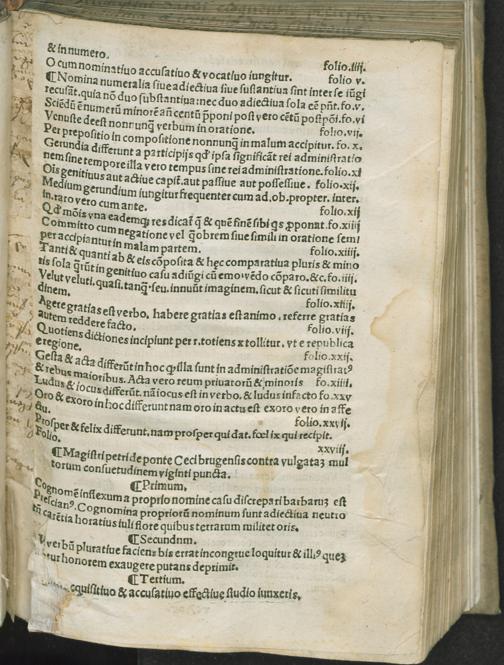 & in numero. folio.iiij.
O cum nominatiuo accusatiuo & vocatiuo iungitur. folio v.
¶Nomina numeralia siue adiectiua siue sustantiua sint inter se iūgi
recusāt. quia nō duo substantiua: nec duo adiectiua sola eē pn̄t. fo.v.
Sciēdū ē numerū minorē an̄ centū p̄poni post vero cētū postpōi. fo.vi
Venuste deest nonnunq̄ verbum in oratione. folio.vij.
Per prepositio in compositione nonnunq̄ in malum accipitur. fo. x.
Gerundia differunt a participijs qd' ipsa significāt rei administratio
nem sine tempore illa vero tempus sine rei administratione. folio.xi
Ois genitiuus aut actiue capit̄. aut passiue aut possessiue. folio.xij.
Medium gerundium iungitur frequenter cum ad. ob. propter. inter.
in. raro vero cum ante. folio.xij
Qd' mōis vna eademqꝫ res dicat̄ q̄ & quē finē sibi qs ꝓponat. fo.xiiij
Committo cum negatione vel q̄obrem siue simili in oratione semi
per accipiantur in malam partem. folio.xiiij.
Tanti & quanti ab & eis cōposita & hęc comparatiua pluris & mino
ris sola q̄rūt in genitiuo casu adiūgi cū emo. vēdo cōparo. &c. fo.iiij.
Velut veluti. quasi. tanq̄. seu. innuūt imaginem. sicut & sicuti similitu
dinem. folio.xiij.
Agere gratias est verbo, habere gratias est animo. referre gratias
autem reddere facto. folio.viij.
Quotiens dictiones incipiunt per r. totiens x tollitur. vt e republica
e regione. folio.xxij.
Gesta & acta differūt in hoc ꝙ illa sunt in administratiōe magistratꝰ
& rebus maioribus. Acta vero reum priuatorū & minoris fo.xiiij.
Ludus & iocus differūt. nā iocus est in verbo. & ludus in facto fo.xxv
Oro & exoro in hoc differunt nam oro in actu est exoro vero in affe
ctu. folio.xxvij.
Prosper & felix differunt, nam prosper qui dat. fœlix qui recipit.
Folio. xxviij.
¶Magistri petri de ponte Ceci brugensis contra vulgataꝫ mul
torum consuetudinem viginti puncta.
¶Primum.
Cognomē inflexum a proprio nomine casu discrepari barbaruꝫ est
Prescianꝰ. Cognomina propriorū nominum sunt adiectiua neutro
carētia horatius iuli flore quibus terrarum militet oris,
¶Secundnm.
verbū pluratiue faciens bis errat incongrue loquitur & illꝰ queꝫ
honorem exaugere putans deprimit.
¶Tertium.
cquisitiuo & accusatiuo effectiue studio iunxeris,